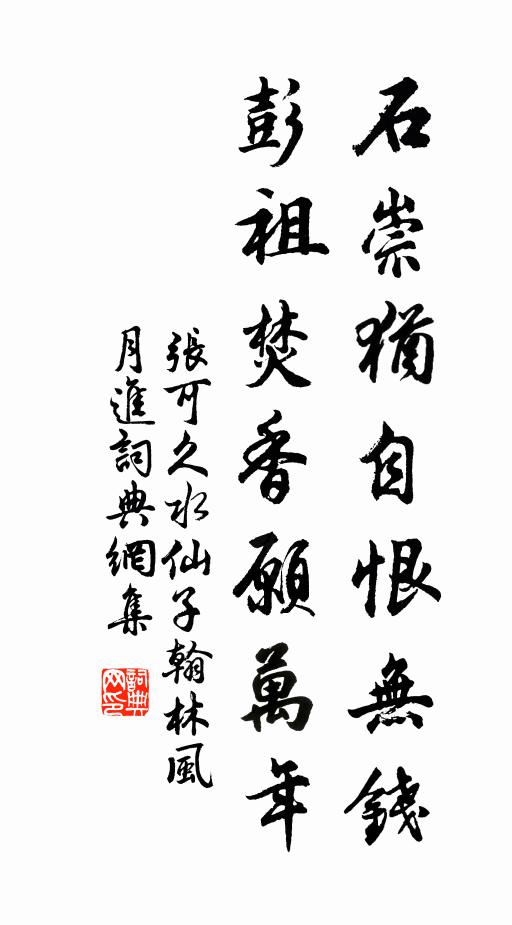 石崇猶自恨無錢
彭祖焚香願萬年
張可久水仙子翰林風
月進詞典網集
詞典
网印